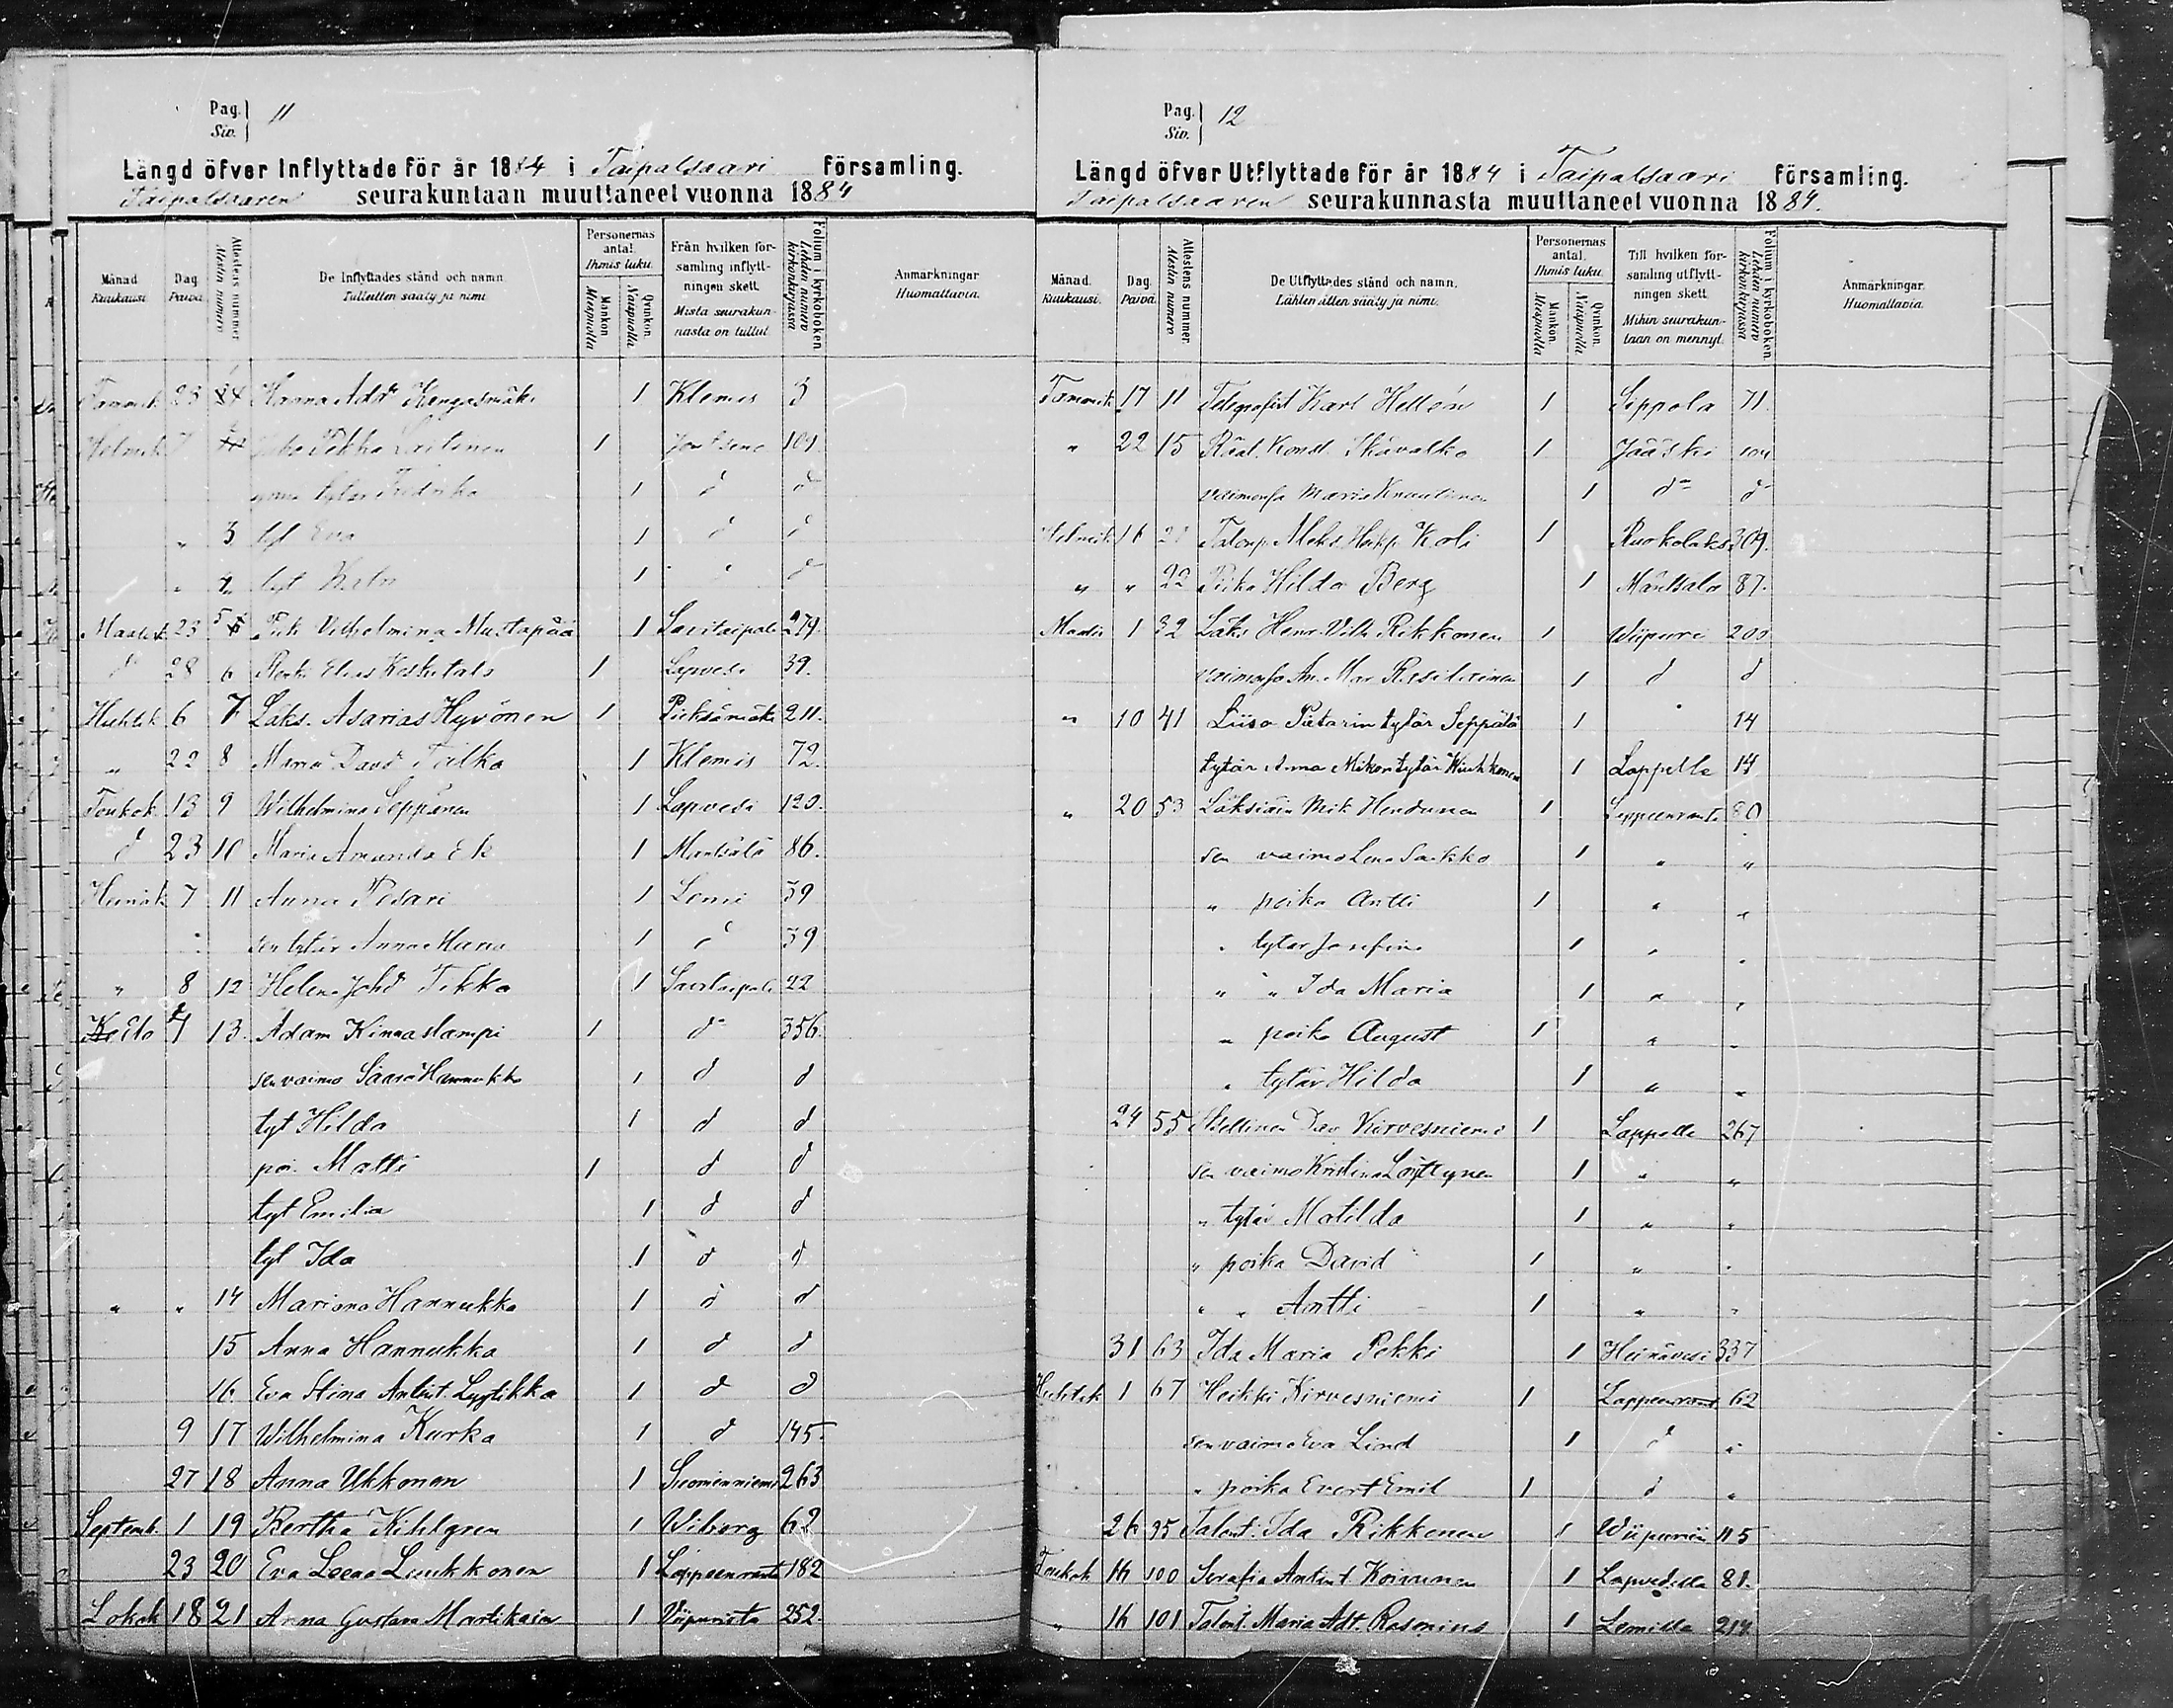 Pag. Siv. 11
Längd öfver Inflyttade för år 1884 i Taipalsaari församling.
Taipalsaaren seurakuntaan muuttaneet vuonna 1884
Månad Kuukausi.
Dag Päivä.
Attestens nummer Atestin numero
De Inflyttades stånd och namn.
Tulleitten sääty ja nimi.
Personernas antal.
Ihmis luku.
Mankön Miespuolia
Qvinkön Naispuolia
Från hvilken församling inflyttningen skett.
Mistä seurakunnasta on tullut
Folium i kyrkoboken Lehden numero kirkonkirjassa
Anmärkningar Huomattavia.
Tammik 23 Hanna Adt Kengasmäki 1 Klemis 3
Helmik 7 Pekka Laitinen 1 Joutseno 109
tytär Fredrika 1 d d
„ 3 tyt Eva 1 d d
„ 4 tyt 1 d d
Maalisk 23 5 Vilhelmina Mustapää 1 Savitaipale 279.
d 28 6 Renki Elias Keskitalo 1 Lapvesi 39.
Huhtik 6 7 Läks. Asarias Hyvönen 1 Pieksämäki 211.
„ 22 8 Maria Davd Talka 1 Klemis 72.
Toukok 13 9 Wilhelmina Seppänen 1 Lapvesi 120.
d 23 10 Maria Amanda Ek 1 Mäntsälä 86.
Heinäk 7 11 Anna Pesari 1 Lemi 39
sen tytär Anna Maria 1 d 39
„ 8 12 Helena Johd Tikka 1 Savitaipale 22
Elo 4 13. Adam Kinnaslampi 1 d 356.
sen vaimo Saara Hannukka 1 d d
tyt Hilda 1 d d
poi. Matti 1 d d
tyt Emilia 1 d d
tyt Ida 1 d d
„ „ 14 Mariana Hannukka 1 d d
15 Anna Hannukka 1 d d
16. Eva Stina Antint. Lyytikka 1 d d
9 17 Wilhelmina Kurka 1 d 145.
27 18 Anna Ukkonen 1 Suomenniemi 263
Septemb. 1 19 Bertha Kihlgren 1 Wiborg 62
23 20 Eva Leena Liukkonen 1 Lappeenranta 182
Lokak 18 21 Anna Gustava Martikain 1 Viipurista 252.
Pag. Siv. 12
Längd öfver Utflyttade för år 1884 i Taipalsaari församling.
Taipalsaaren seurakunnasta muuttaneet vuonna 1884.
Månad. Kuukausi.
Dag. Päivä.
Attestens nummer. Atestin numero
De Utflyttades stånd och namn.
Lähteneitten sääty ja nimi.
Personernas antal.
Ihmis luku.
Mankön. Miespuolia
Qvinkön. Naispuolia
Till hvilken församling utflyttningen skett.
Mihin seurakuntaan on mennyt.
Folium i kyrkoboken. Lehden numero kirkonkirjassa
Anmärkningar. Huomattavia.
Tammik 17 11 Telegrafist Karl Hellén 1 Sippola 71.
„ 22 15 Räät. Konst. Skävalko 1 Jääski 104
vaimonsa Maria 1 d d
Helmik 16 21 Talonp. Aleks. Heikp. Koli 1 Ruokolaks 309.
„ „ 22 Piika Hilda Berg 1 Mäntsälä 87.
Maalis 1 32 Läks Henr. Vilh Rikkonen 1 Wiipuri 200
vaimonsa An. Mar. 1 d d
„ 10 41 Liisa Pietarin tytär Seppälä 1 14
tytär Anna Mikon tytär 1 Lappelle 14
„ 20 53 Läksiäin Mik Hendunen 1 Lappeenranta 80
sen vaimo Lena Saikko 1 „ „
„ poika Antti 1 „ „
„ tytär Josefina 1 „ „
„ „ Ida Maria 1 „ „
„ poika August 1 „ „
„ tytär Hilda 1 „ „
24 55 Itsellinen Dav Kirvesniemi 1 Lappelle 267
sen vaimo Kristina Löyttynen 1 „ „
„ tytär Matilda 1 „ „
„ poika David 1 „ „
„ „ Antti 1 „ „
31 63 Ida Maria Pekki 1 Heinävesi 337
Huhtik 1 67 Heikki Kirvesniemi 1 Lappeenrant 62
sen vaimo Eva Lind 1 d „
„ poika Evert Emil 1 d „
26 95 Talont. Ida Rikkonen 1 Wiipuriin 115
Toukok 16 100 Serafia Antint Koivunen 1 Lapvedelle 81.
„ 16 101 Talont. Maria Adt. Rosenius 1 Lemille 214.